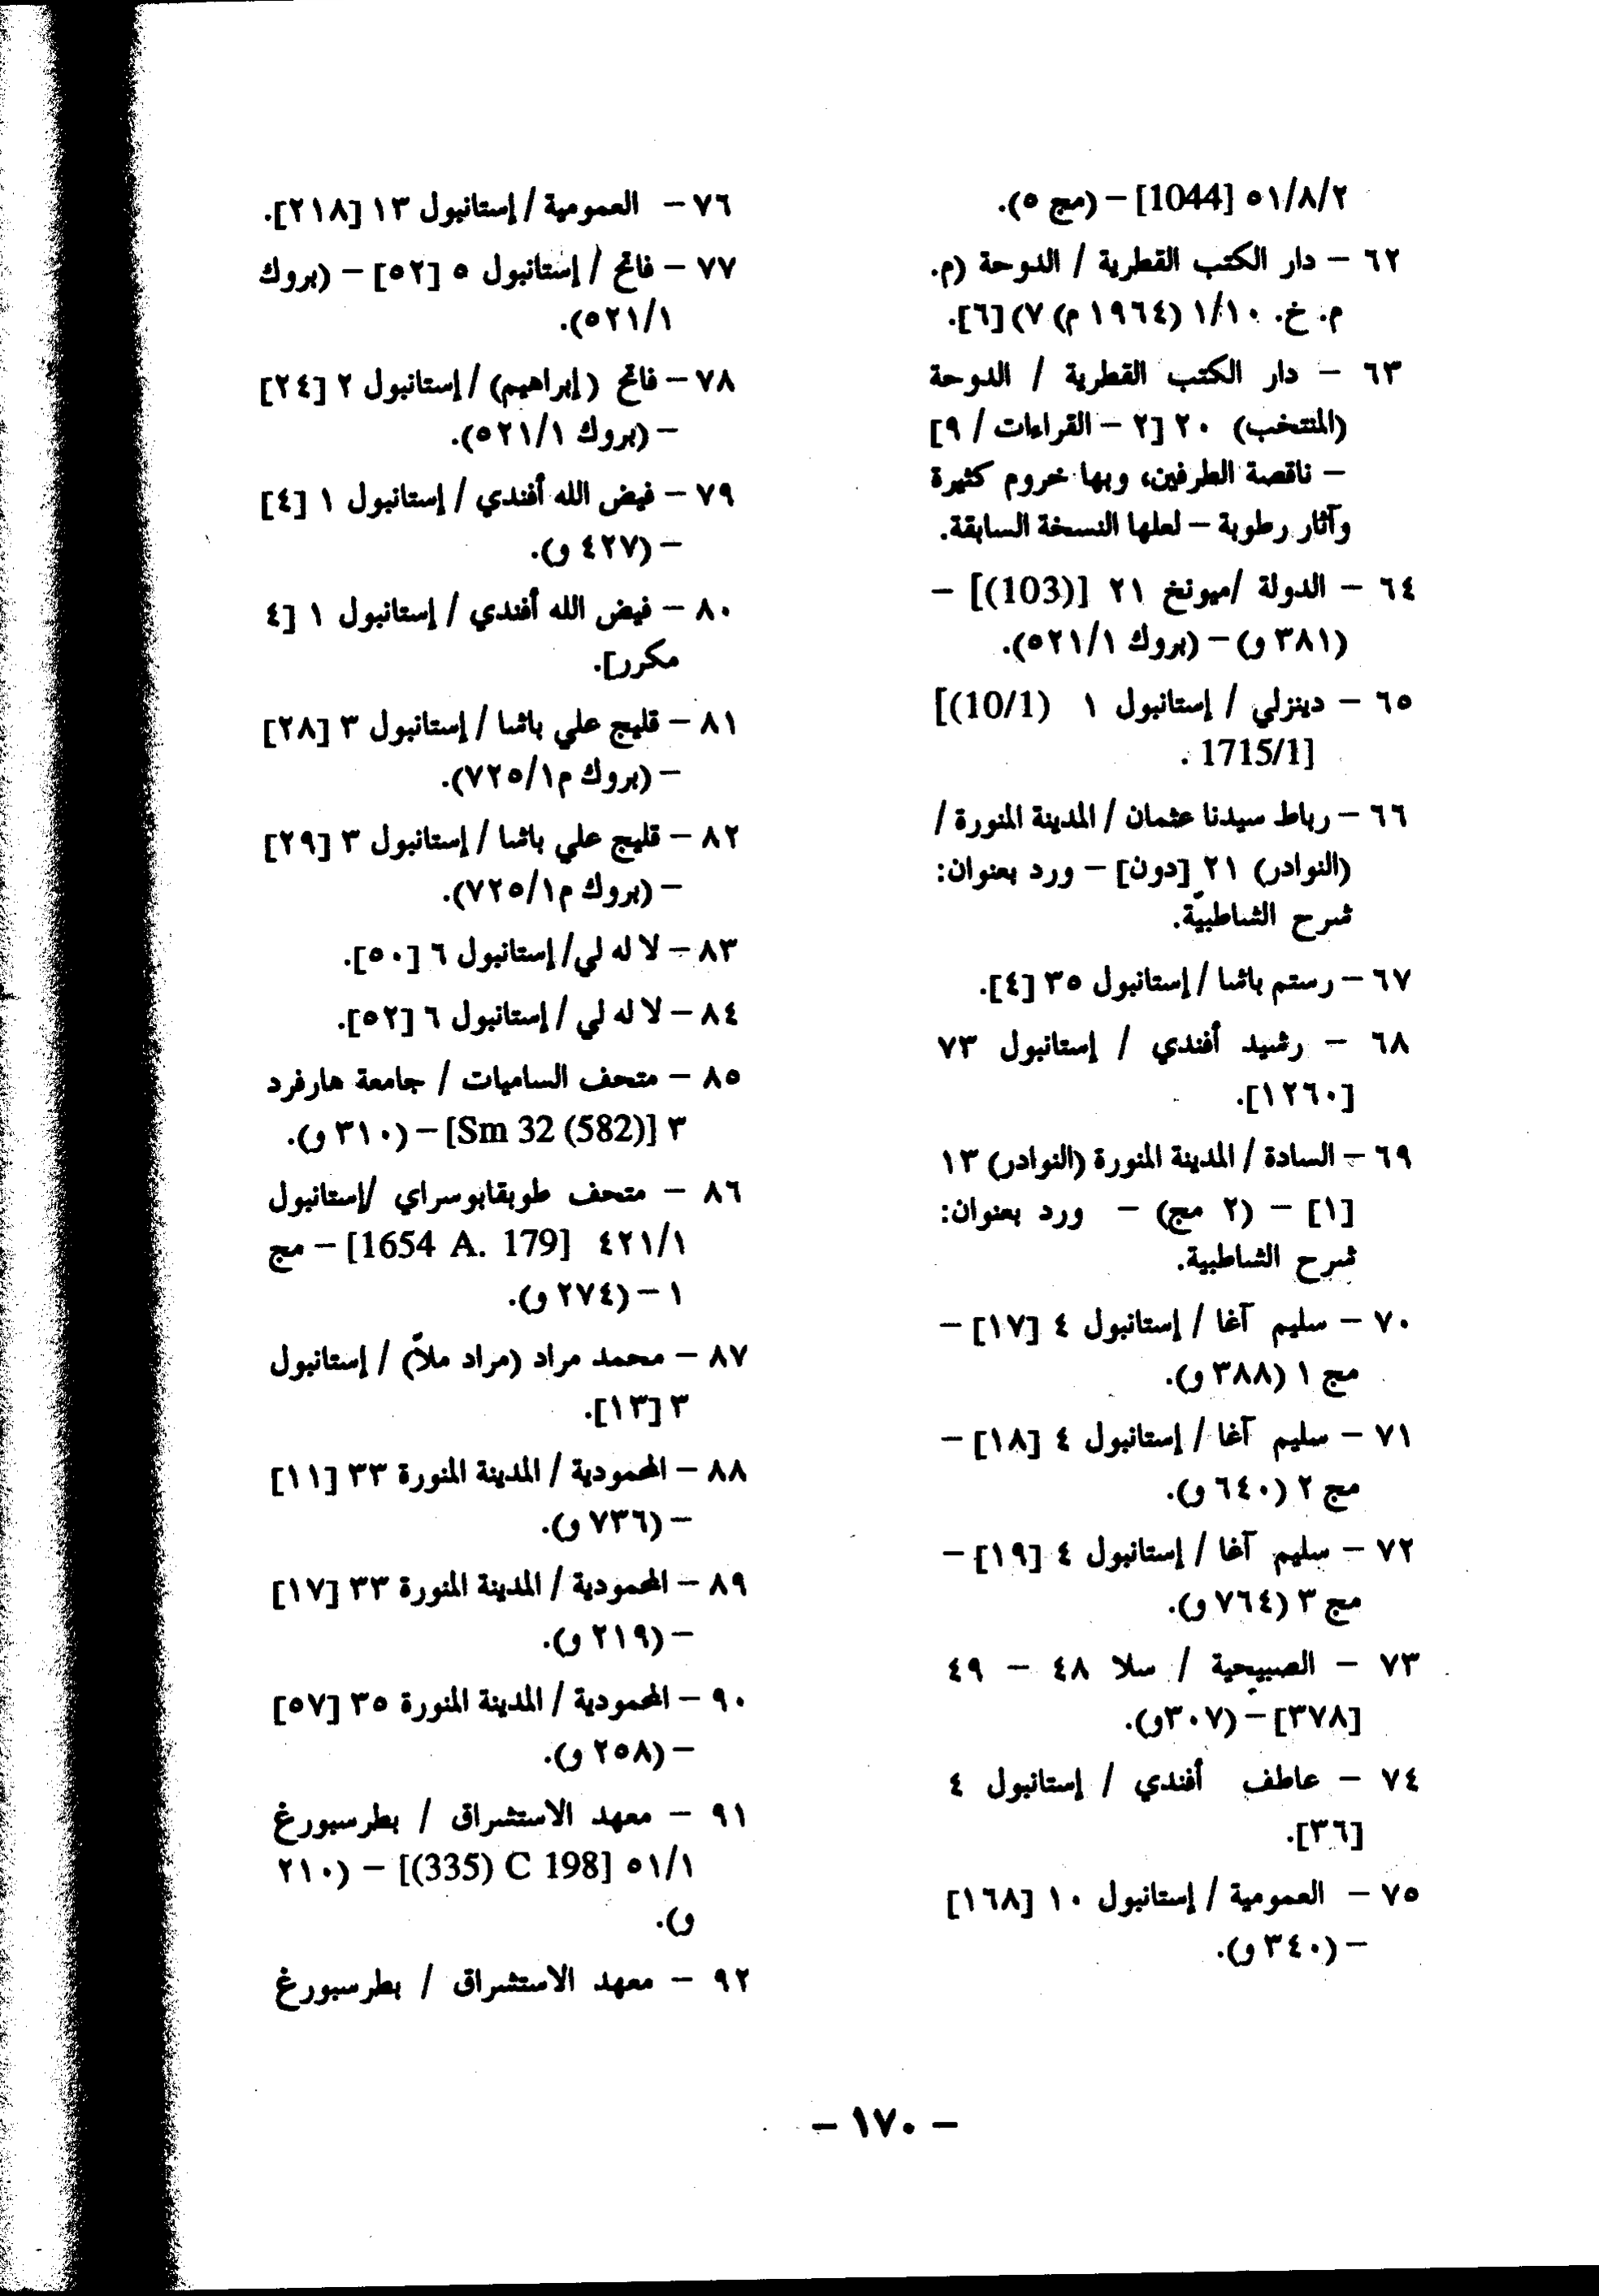 ٥١/٨/٢ [1044] – (مج ٥).
٦٢ – دار الكتب القطرية / الدوحة (م.
م. خ. ١/١٠ (١٩٦٤ م) ٧) [٦].
٦٣ – دار الكتب القطرية / الدوحة
(المنتخب) ٢٠ [٢ – القراءات / ٩]
– ناقصة الطرفين، وبها خروم كثيرة
وآثار رطوبة – لعلها النسخة السابقة.
٦٤ – الدولة /ميونخ ٢١ [(103)] –
(٣٨١ و) – (بروك ٥٢١/١).
٦٥ – دينزلي / إستانبول ١ [(10/1)
1715/1] .
٦٦ – رباط سيدنا عثمان / المدينة المنورة /
(النوادر) ٢١ [دون] – ورد بعنوان:
شرح الشاطبيّة.
٦٧ – رستم باشا / إستانبول ٣٥ [٤].
٦٨ – رشيد أفندي / إستانبول ٧٣
[١٢٦٠].
٦٩ – السادة / المدينة المنورة (النوادر) ١٣
[١] – (٢ مج) – ورد بعنوان:
شرح الشاطبية.
٧٠ – سليم آغا / إستانبول ٤ [١٧] –
مج ١ (٣٨٨ و).
٧١ – سليم آغا / إستانبول ٤ [١٨] –
مج ٢ (٦٤٠ و).
٧٢ – سليم آغا / إستانبول ٤ [١٩] –
مج ٣ (٧٦٤ و).
٧٣ – الصبيحية / سلا ٤٨ – ٤٩
[٣٧٨] – (٣٠٧و).
٧٤ – عاطف أفندي / إستانبول ٤
[٣٦].
٧٥ – العمومية / إستانبول ١٠ [١٦٨]
– (٣٤٠ و).
٧٦ – العمومية / إستانبول ١٣ [٢١٨].
٧٧ – فاتح / إستانبول ٥ [٥٢] – (بروك
٥٢١/١).
٧٨ – فاتح (إبراهيم) / إستانبول ٢ [٢٤]
– (بروك ٥٢١/١).
٧٩ – فيض الله أفندي / إستانبول ١ [٤]
– (٤٢٧ و).
٨٠ – فيض الله أفندي / إستانبول ١ [٤
مكرر].
٨١ – قليج علي باشا / إستانبول ٣ [٢٨]
– (بروك م٧٢٥/١).
٨٢ – قليج علي باشا / إستانبول ٣ [٢٩]
– (بروك م٧٢٥/١).
٨٣ – لا له لي/ إستانبول ٦ [٥٠].
٨٤ – لا له لي / إستانبول ٦ [٥٢].
٨٥ – متحف الساميات / جامعة هارفرد
٣ [Sm 32 (582)] – (٣١٠ و).
٨٦ – متحف طوبقابوسراي /إستانبول
٤٢١/١ [1654 A. 179] – مج
١ – (٢٧٤ و).
٨٧ – محمد مراد (مراد ملاّ) / إستانبول
٣ [١٣].
٨٨ – المحمودية / المدينة المنورة ٣٣ [١١]
– (٧٣٦ و).
٨٩ – المحمودية / المدينة المنورة ٣٣ [١٧]
– (٢١٩ و).
٩٠ – المحمودية / المدينة المنورة ٣٥ [٥٧]
– (٢٥٨ و).
٩١ – معهد الاستشراق / بطرسبورغ
٥١/١ [(335) C 198] – (٢١٠
و).
٩٢ – معهد الاستشراق / بطرسبورغ
– ١٧٠ –